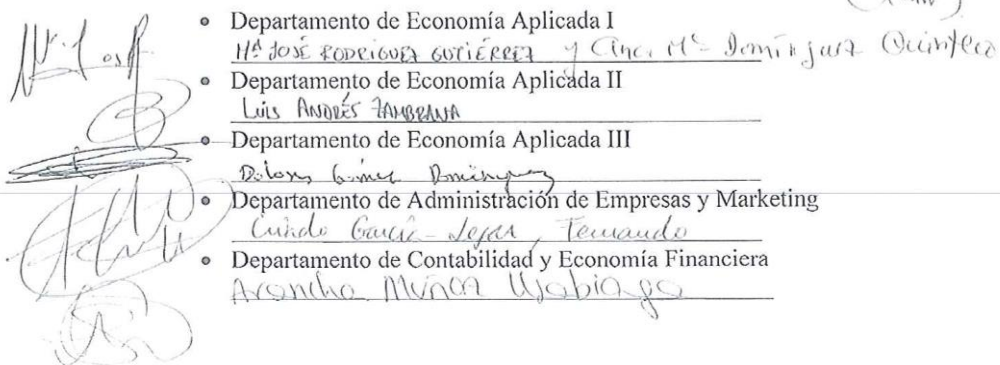 • Departamento de Economía Aplicada I
Mª JOSÉ RODRIGUEZ GUTIÉRREZ y Ana Mª Domínguez Quintero
• Departamento de Economía Aplicada II
LUIS ANDRÉS ZAMBRANA
• Departamento de Economía Aplicada III
Dolores Gómez Domínguez
• Departamento de Administración de Empresas y Marketing
Criado García-Legaz, Fernando
• Departamento de Contabilidad y Economía Financiera
Arancha Muñoz Usabiaga